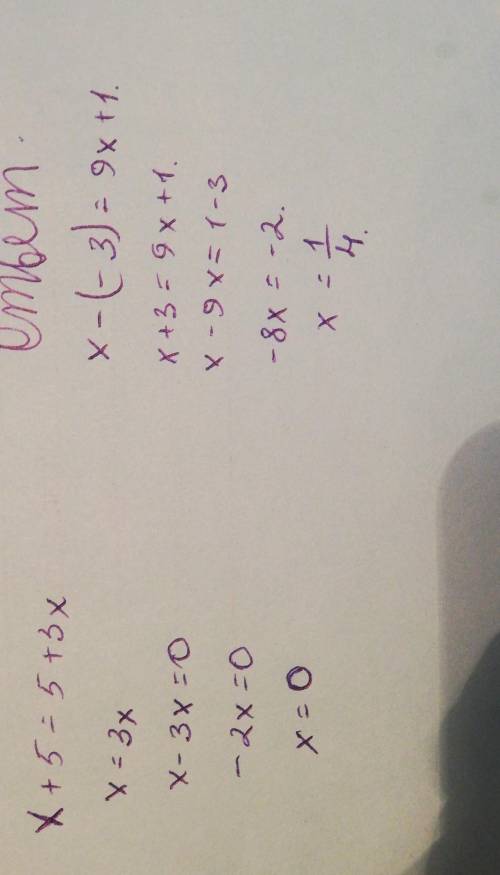 Ответ.
x + 5 = 5 + 3x
x = 3x
x - 3x = 0
- 2x = 0
x = 0
x - (-3) = 9x + 1.
x + 3 = 9x + 1.
x - 9x = 1 - 3
-8x = -2.
x = 1/4.